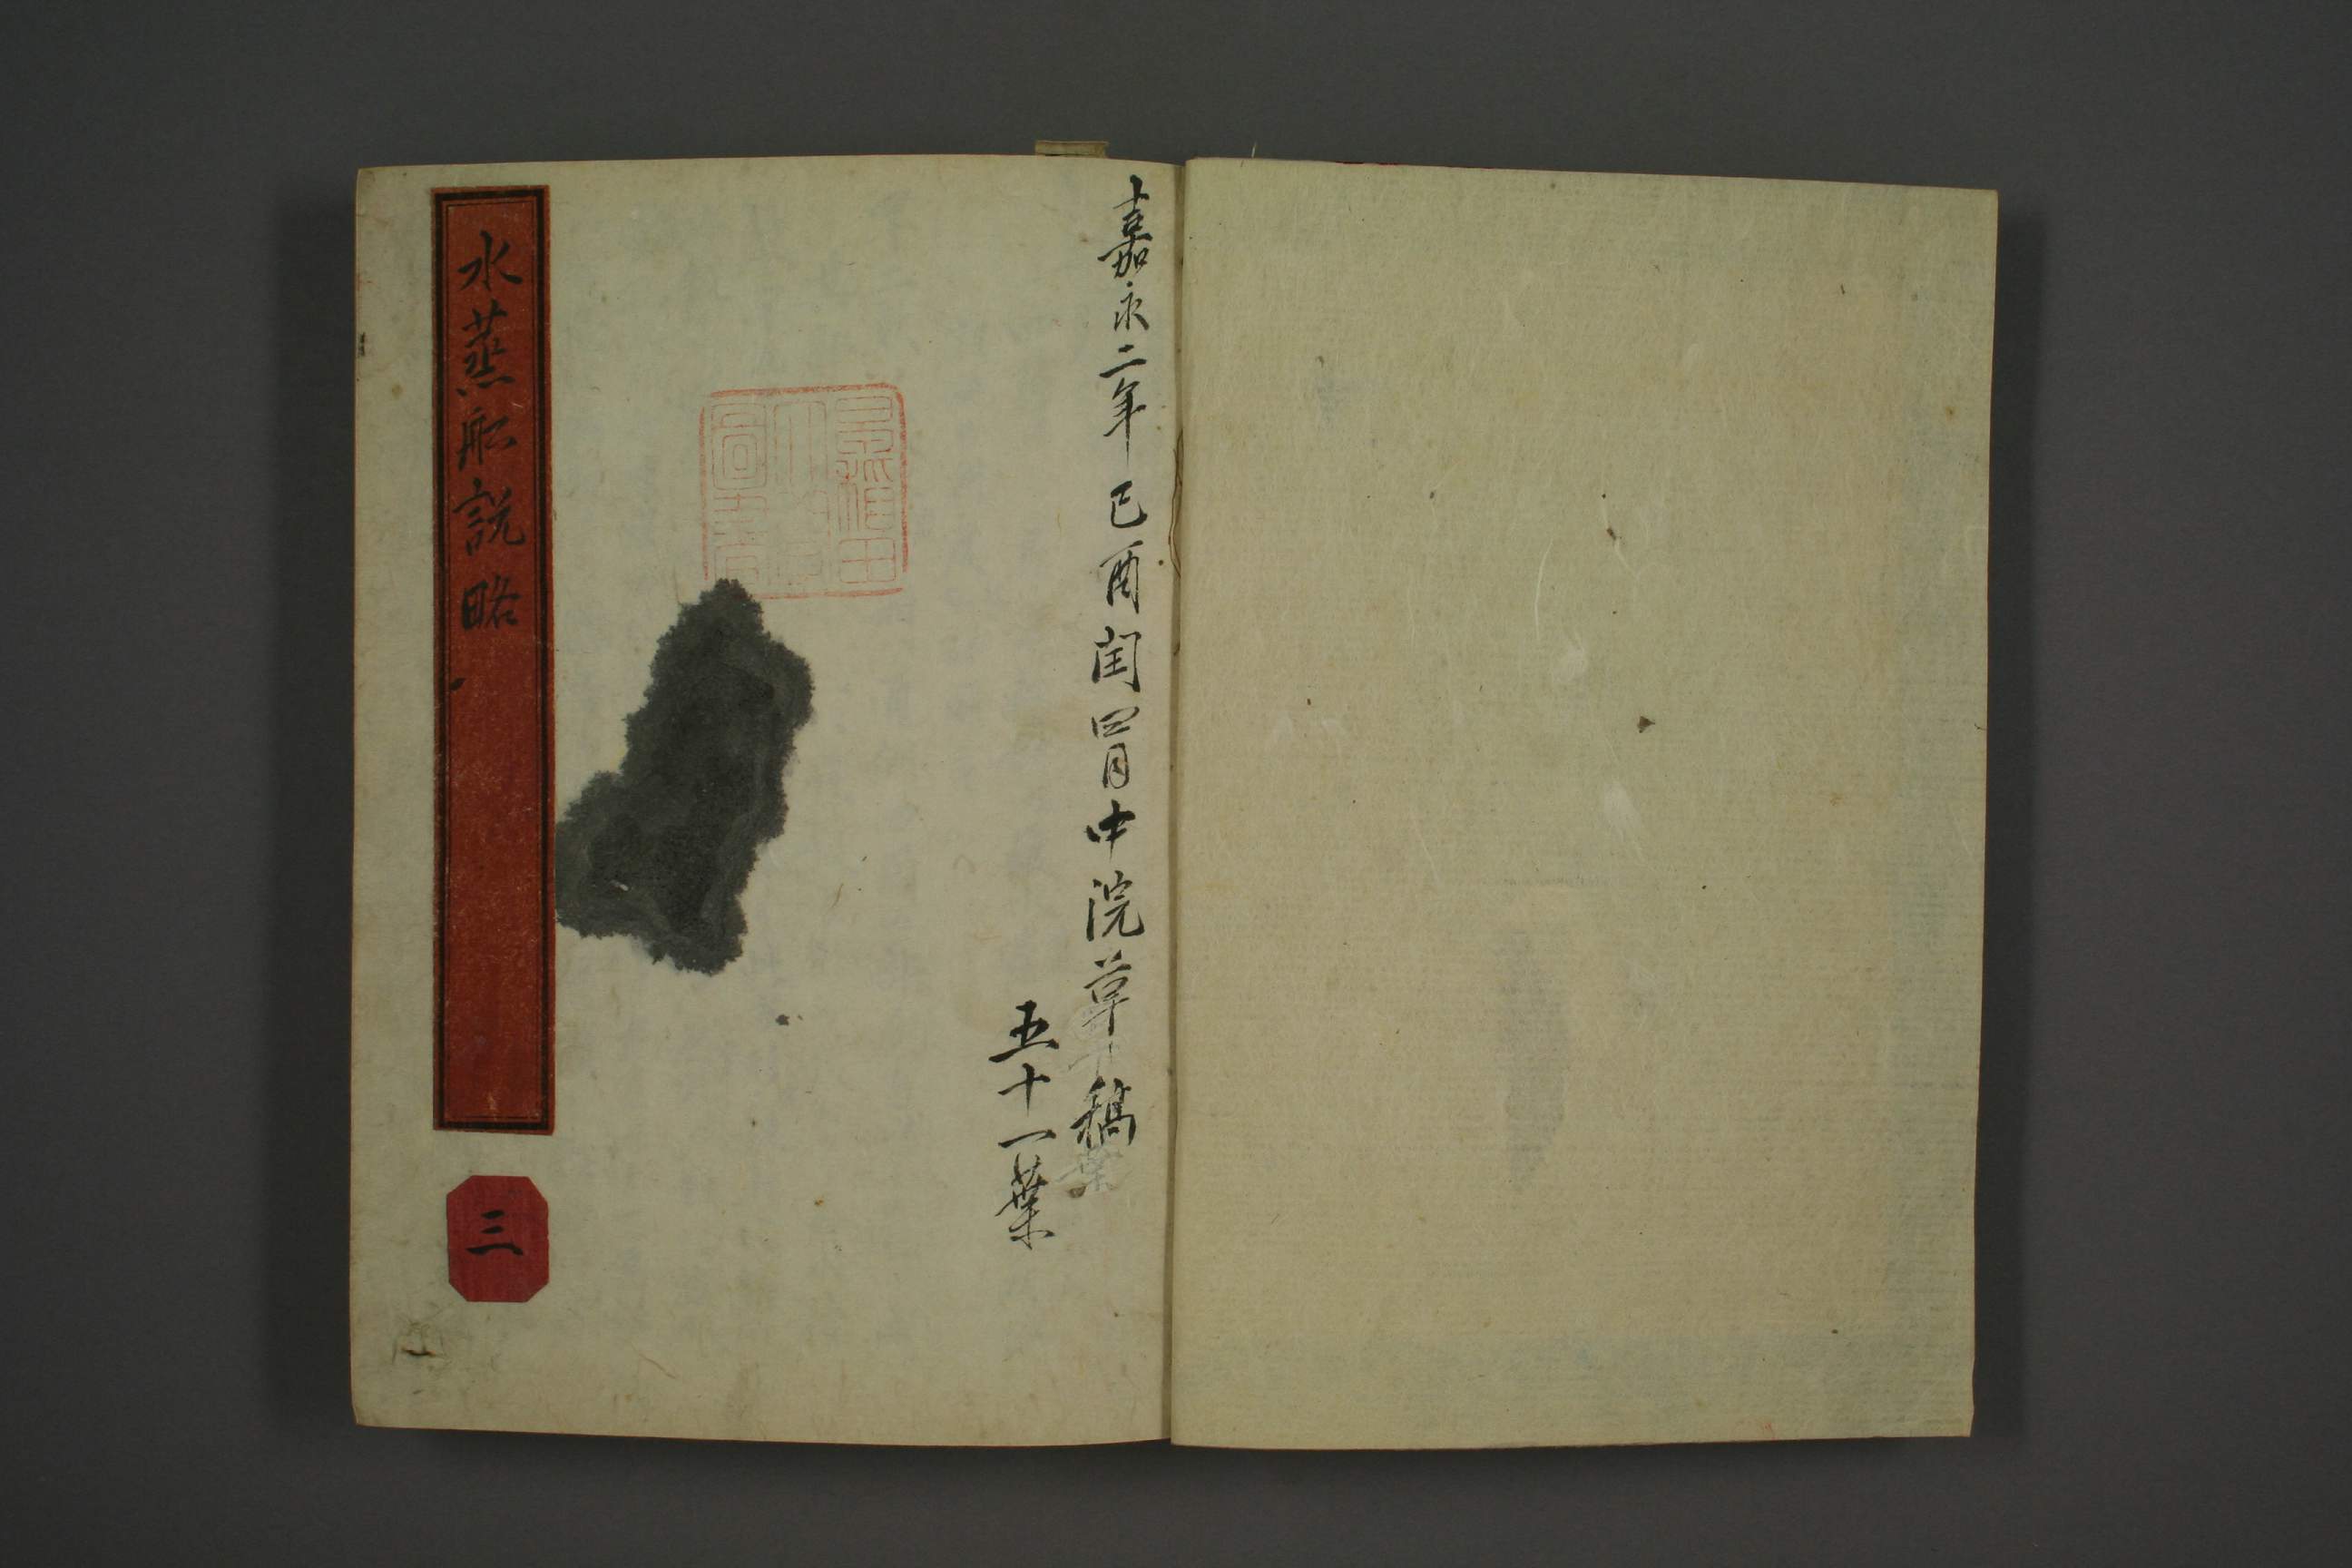 嘉永二年己酉閏四月中浣草稿
五十一葉
水蒸舩説略
三